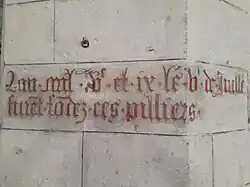 Lan · mil · vᶜ · et · ix · le · v · de Juille
furent · fōdez · ces · pilliers ·